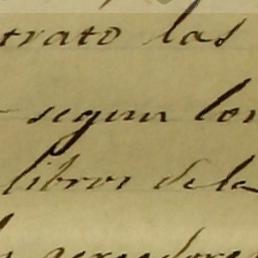 trato las
segun lon
libros de la